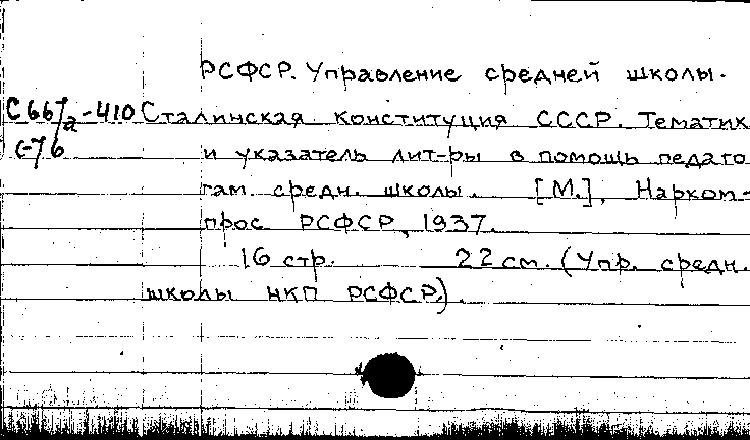 РСФСР. Управление средней школы.
С 66/а-410 Сталинская конституция СССР. Тематик
С-76 и указатель лит-ры в помощь педаго
гам средн. школы. [М.], Нарком-
прос РСФСР, 1937.
16 стр. 22 см. (Упр. средн.
школы НКП РСФСР).